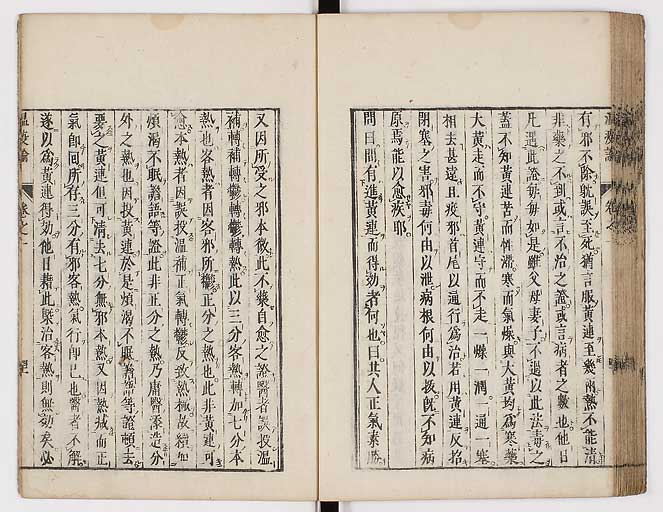 有邪不除耽誤至死猶言服黃連至幾兩熱不能清
非藥之不到或言不治之證或言病者之數也他日
凡遇此證每每如是雖父母妻子不過以此法毒之
蓋不知黃連苦而性滯寒而氣燥與大黃均為寒藥
大黃走而不守黃連守而不走一燥一潤一通一塞
相去甚遠且疫邪首尾以通行為治若用黃連反招
閉塞之害邪毒何由以泄病根何由以拔既不知病
原焉能以愈疾耶
問曰間有進黃連而得効者何也曰其人正氣素勝
又因所受之邪本微此不藥自愈之證醫者誤投溫
補轉補轉鬱轉鬱轉熱此以三分客熱轉加七分本
熱也客熱者因客邪所鬱正分之熱也此非黃連可
愈本熱者因誤投溫補正氣轉鬱反致熱極故續加
煩渴不眠譫語等證此非正分之熱乃庸醫添造分
外之熱也因投黃連於是煩渴不眠譫語等證頓去
要之黃連但可清去七分無邪本熱又因熱減而正
氣即回所存三分有邪客熱氣行即已也醫者不解
遂以為黃連得効他日藉此槩治客熱則無効矣必
溫疫論
卷之一